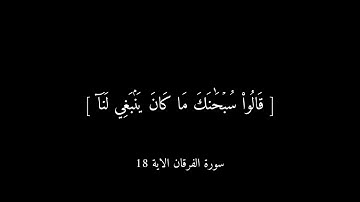 [ قَالُوا۟ سُبْحَٰنَكَ مَا كَانَ يَنۢبَغِي لَنَآ ]
سورة الفرقان الاية 18